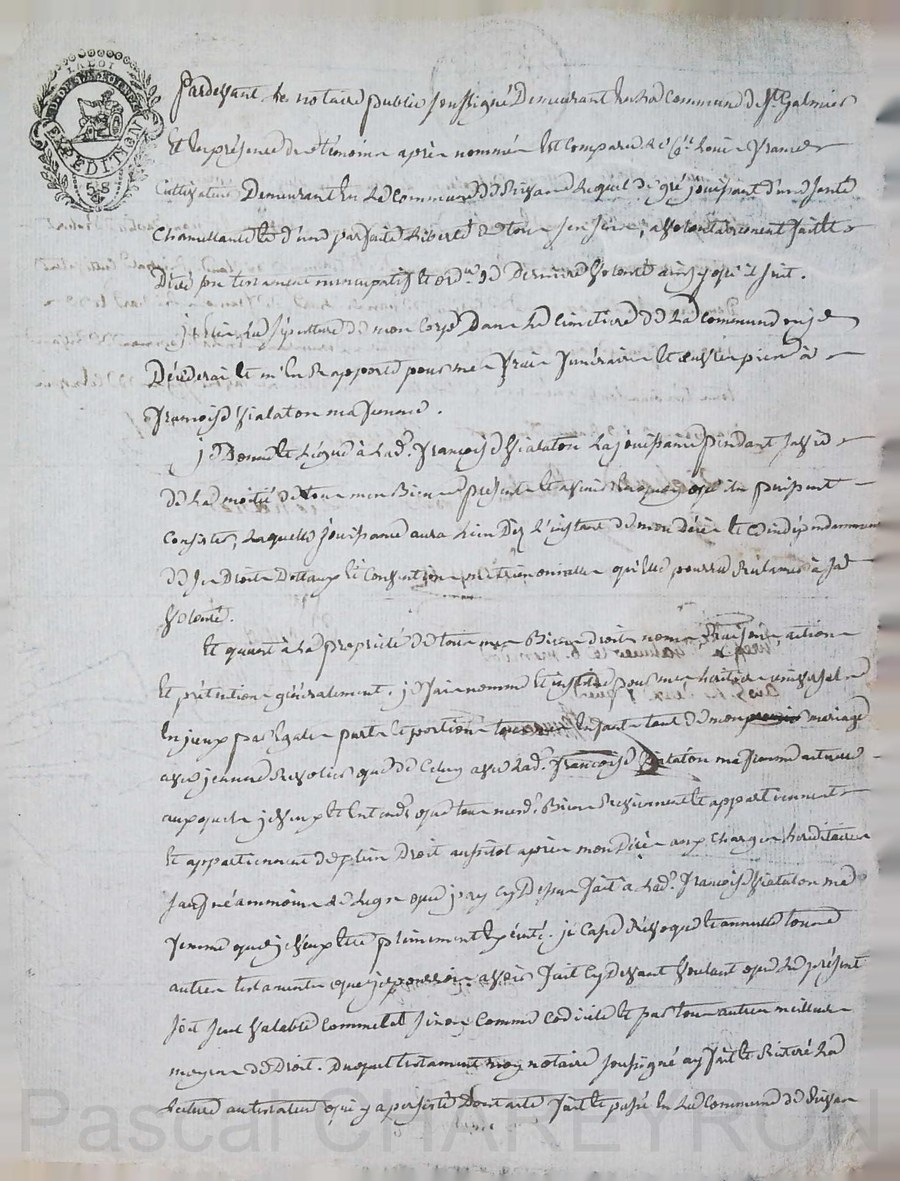 LA LOI
EXPEDITION
58
Pardevant les notaire public soussigné Demeurant en la commune de St. Galmier
Et en presence des témoins après nommés est comparu le Cen. Louis France
Cultivateur Demeurant en la Commune de Rivas Lequel de gré jouissant d'une santé
Chancellante et d'une parfaite Liberté de tous ses sens, a volontairement fait et
Dicté son testament noncupatif et ordre. de Derniere volonté ainsy qu'il suit.
j'elis la sépulture de mon Corps Dans le Cimetiere de la commune ou je
Décederai et m'en rapporte pour mes frais funéraires et œuvres pies à
françoise Vialaton ma femme.
je Donne et Légue à lad. françoise Vialaton la jouissance pendant sa vie
de la moitié de tous mes Biens présents et avenir en quoy qu'ils puissent
Consister, laquelle jouissance aura lieu Dez l'instant de mon décès et ce indépendamment
de ses Droits Dottaux et Convention matrimonialle qu'elle pourra Réclamer à sa
volonté.
Et quant à la propriété de tous mes Biens droits noms Raisons, actions
Et prétentions généralement. je fais nomme et institue pour mes héritiers universels
En jeux par égale part et portion tous enfants tant de mon mariage
avec jeanne que de Celuy avec lad. françoise Vialaton ma femme actuelle
auxquels je veux et Entends que tous mesd. Biens Reviennent et appartiennent
Et appartiennent de plein Droit aussitot après mon Décès aux Charges héréditaires
Sauf néammoins le Legs que j'ay cy Dessus fait a lad. françoise Vialaton ma
femme que je veux être pleinement exécuté. je Casse Révoque et annulle tous
autres testaments que je pourrois avoir fait cy devant voulant que le présent
soit seul valable comme tel sinon comme codicile et par tous autres meilleurs
moyens de Droit. Duquel testament moy notaire soussigné ay fait et Réitéré la
lecture au testateur qui y a persisté Dont acte fait et passé en la Commune de Rivas
Pascal CHAREYRON